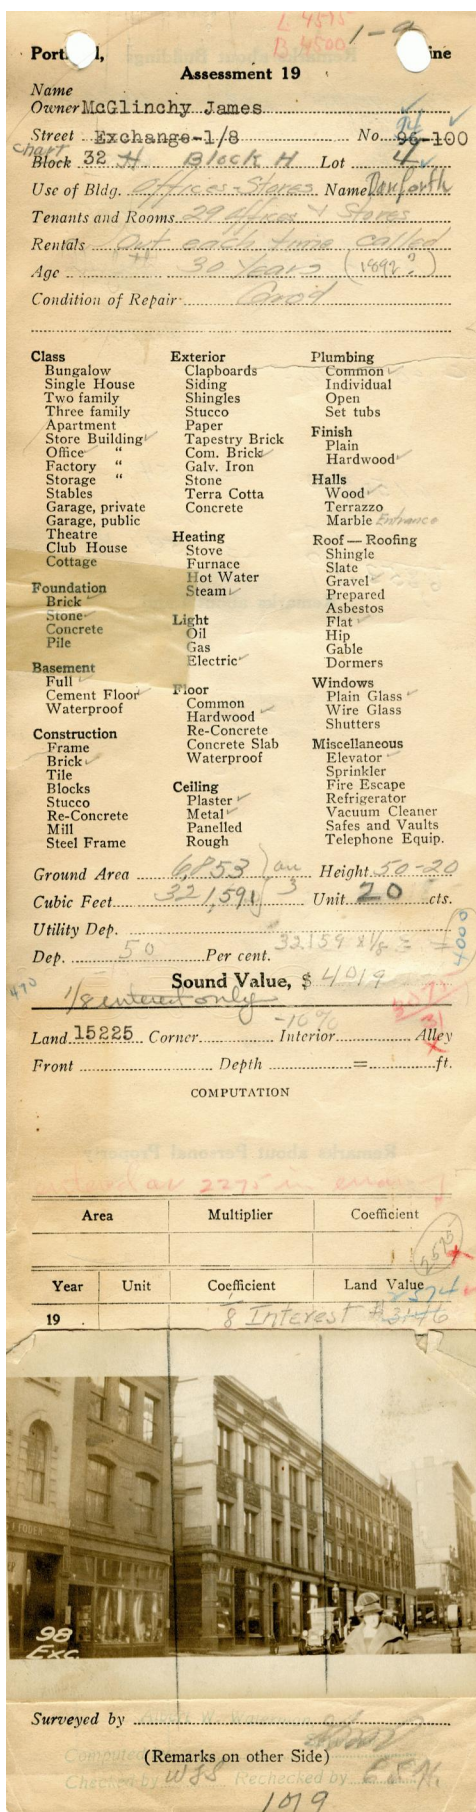 L 4575
B 4500
1-9
Portl d,
ine
Assessment 19
Name
Owner McGlinchy James
Street Exchange-1/8 No. 96-100
Chart
Block 32 H Block H Lot 4
Use of Bldg. Offices-Stores Name Danforth
Tenants and Rooms 29 offices + Stores
Rentals Out each time called
Age 30 Years (1892?)
Condition of Repair Good
Class
Bungalow
Single House
Two family
Three family
Apartment
Store Building
Office "
Factory "
Storage "
Stables
Garage, private
Garage, public
Theatre
Club House
Cottage
Foundation
Brick
Stone
Concrete
Pile
Basement
Full
Cement Floor
Waterproof
Construction
Frame
Brick
Tile
Blocks
Stucco
Re-Concrete
Mill
Steel Frame
Exterior
Clapboards
Siding
Shingles
Stucco
Paper
Tapestry Brick
Com. Brick
Galv. Iron
Stone
Terra Cotta
Concrete
Heating
Stove
Furnace
Hot Water
Steam
Light
Oil
Gas
Electric
Floor
Common
Hardwood
Re-Concrete
Concrete Slab
Waterproof
Ceiling
Plaster
Metal
Panelled
Rough
Plumbing
Common
Individual
Open
Set tubs
Finish
Plain
Hardwood
Halls
Wood
Terrazzo
Marble Entrance
Roof — Roofing
Shingle
Slate
Gravel
Prepared
Asbestos
Flat
Hip
Gable
Dormers
Windows
Plain Glass
Wire Glass
Shutters
Miscellaneous
Elevator
Sprinkler
Fire Escape
Refrigerator
Vacuum Cleaner
Safes and Vaults
Telephone Equip.
Ground Area 6853 Height 50-20
Cubic Feet 321,591 3 Unit 20 cts.
Utility Dep.
Dep. 50 Per cent. 32159 x 1/8 = 4000
Sound Value, $ 4019
470
1/8 interest only
-10%
Land 15225 Corner Interior Alley
Front Depth = ft.
COMPUTATION
entered as 2275 in error
Area Multiplier Coefficient
2575
Year Unit Coefficient Land Value
2374
19 1/8 Interest $3146
98
EXC
Surveyed by
Computed
(Remarks on other Side)
Checked by WJS Rechecked by E.S.H.
1079